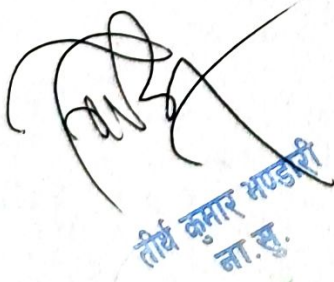 तीर्थ कुमार भण्डारी
ना.सु.